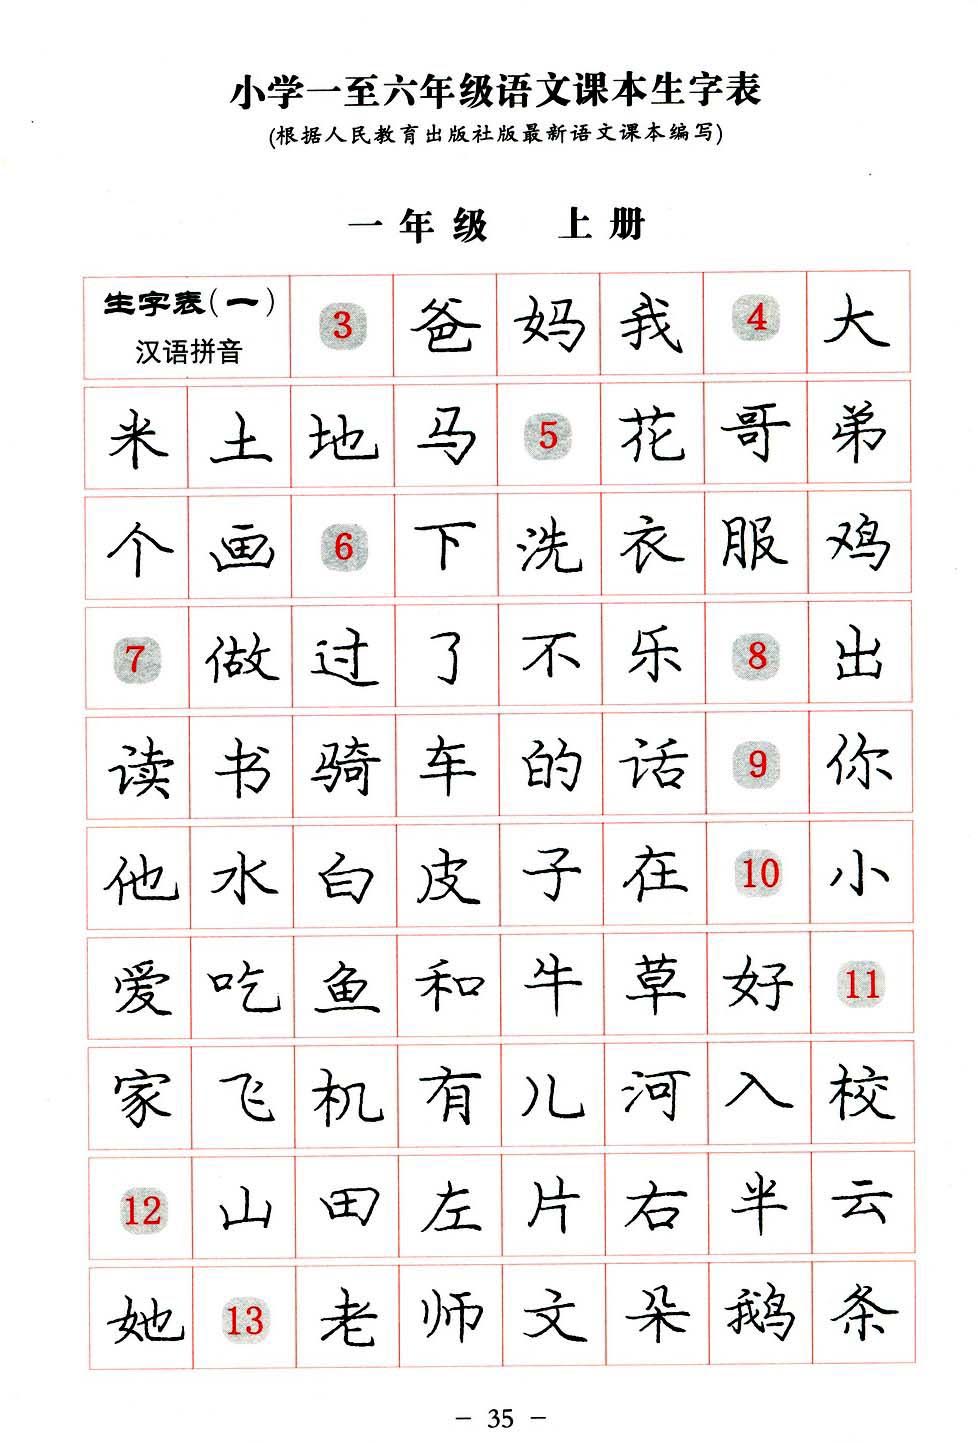 小学一至六年级语文课本生字表
(根据人民教育出版社版最新语文课本编写)
一年级 上册
生字表(一)
汉语拼音
3 爸 妈 我 4 大
米 土 地 马 5 花 哥 弟
个 画 6 下 洗 衣 服 鸡
7 做 过 了 不 乐 8 出
读 书 骑 车 的 话 9 你
他 水 白 皮 子 在 10 小
爱 吃 鱼 和 牛 草 好 11
家 飞 机 有 儿 河 入 校
12 山 田 左 片 右 半 云
她 13 老 师 文 朵 鹅 条
- 35 -